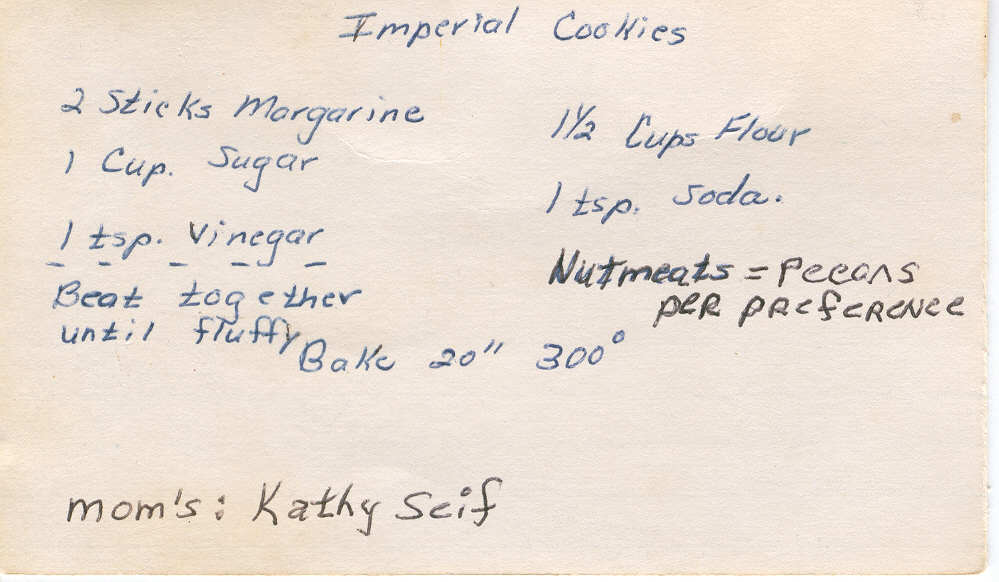 Imperial Cookies
2 Sticks Margarine
1 Cup. Sugar
1 tsp. Vinegar
Beat together
until fluffy
1½ Cups Flour
1 tsp. Soda.
Nutmeats = Pecans
per preference
Bake 20" 300°
mom's: Kathy Seif